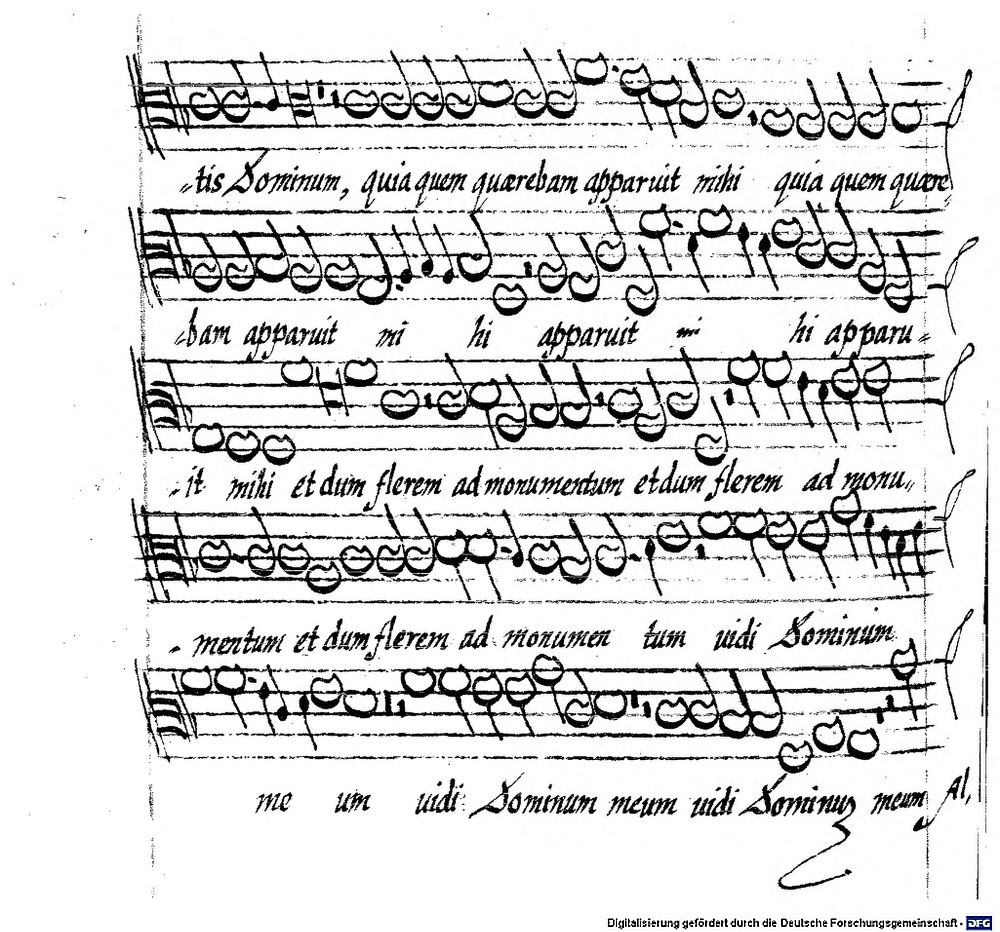 -tis Dominum, quia quem quærebam apparuit mihi quia quem quære
-bam apparuit mi hi apparuit mi hi apparu-
-it mihi et dum flerem ad monumentum et dum flerem ad monu-
-mentum et dum flerem ad monumen tum uidi Dominum
me um uidi Dominum meum uidi Dominuz meum Al,
Digitalisierung gefördert durch die Deutsche Forschungsgemeinschaft - DFG